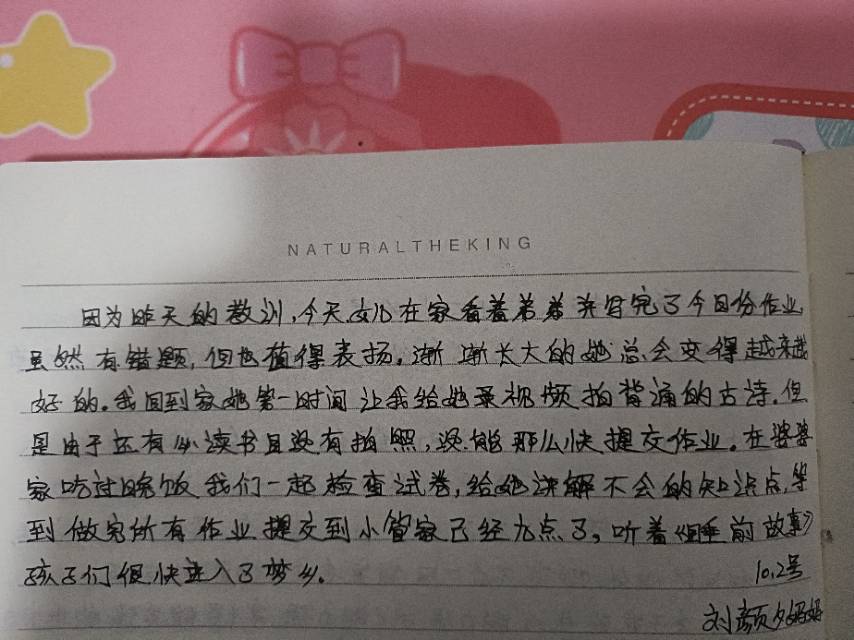 NATURALTHEKING
因为昨天的教训,今天女儿在家看着弟弟并写完了今日份作业,
虽然有错题,但也值得表扬。渐渐长大的她总会变得越来越
好的。我回到家她第一时间让我给她录视频拍背诵的古诗。但
是由于还有小读书且没有拍照,没能那么快提交作业。在婆婆
家吃过晚饭我们一起检查试卷,给她讲解不会的知识点,等
到做完所有作业提交到小管家已经九点了。听着《睡前故事》
孩子们很快进入了梦乡。
10.2号
刘颜夕妈妈